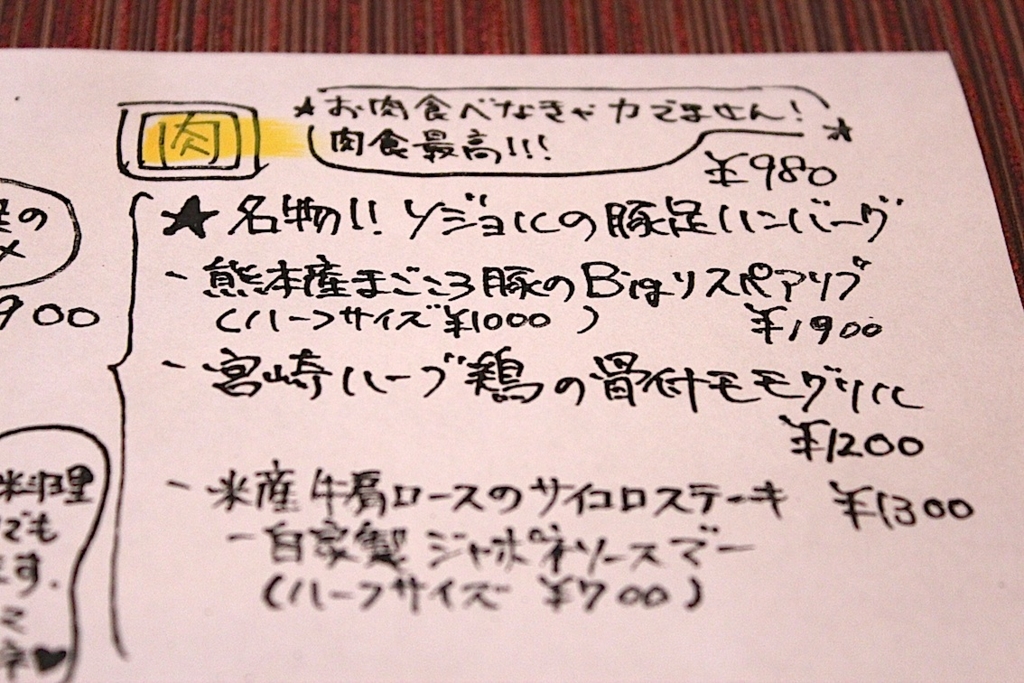 肉
★お肉食べなきゃ力でません!
肉食最高!!! ★
¥980
★名物!! ソジョルの豚足ハンバーグ
- 熊本産まごころ豚のBigリスペアリブ
(ハーフサイズ ¥1000) ¥1900
- 宮崎ハーブ鶏の骨付モモグリル
¥1200
- 米産牛肩ロースのサイコロステーキ ¥1300
-自家製ジャポネソースで-
(ハーフサイズ ¥700)
の
900
料理
でも
ます.
♥